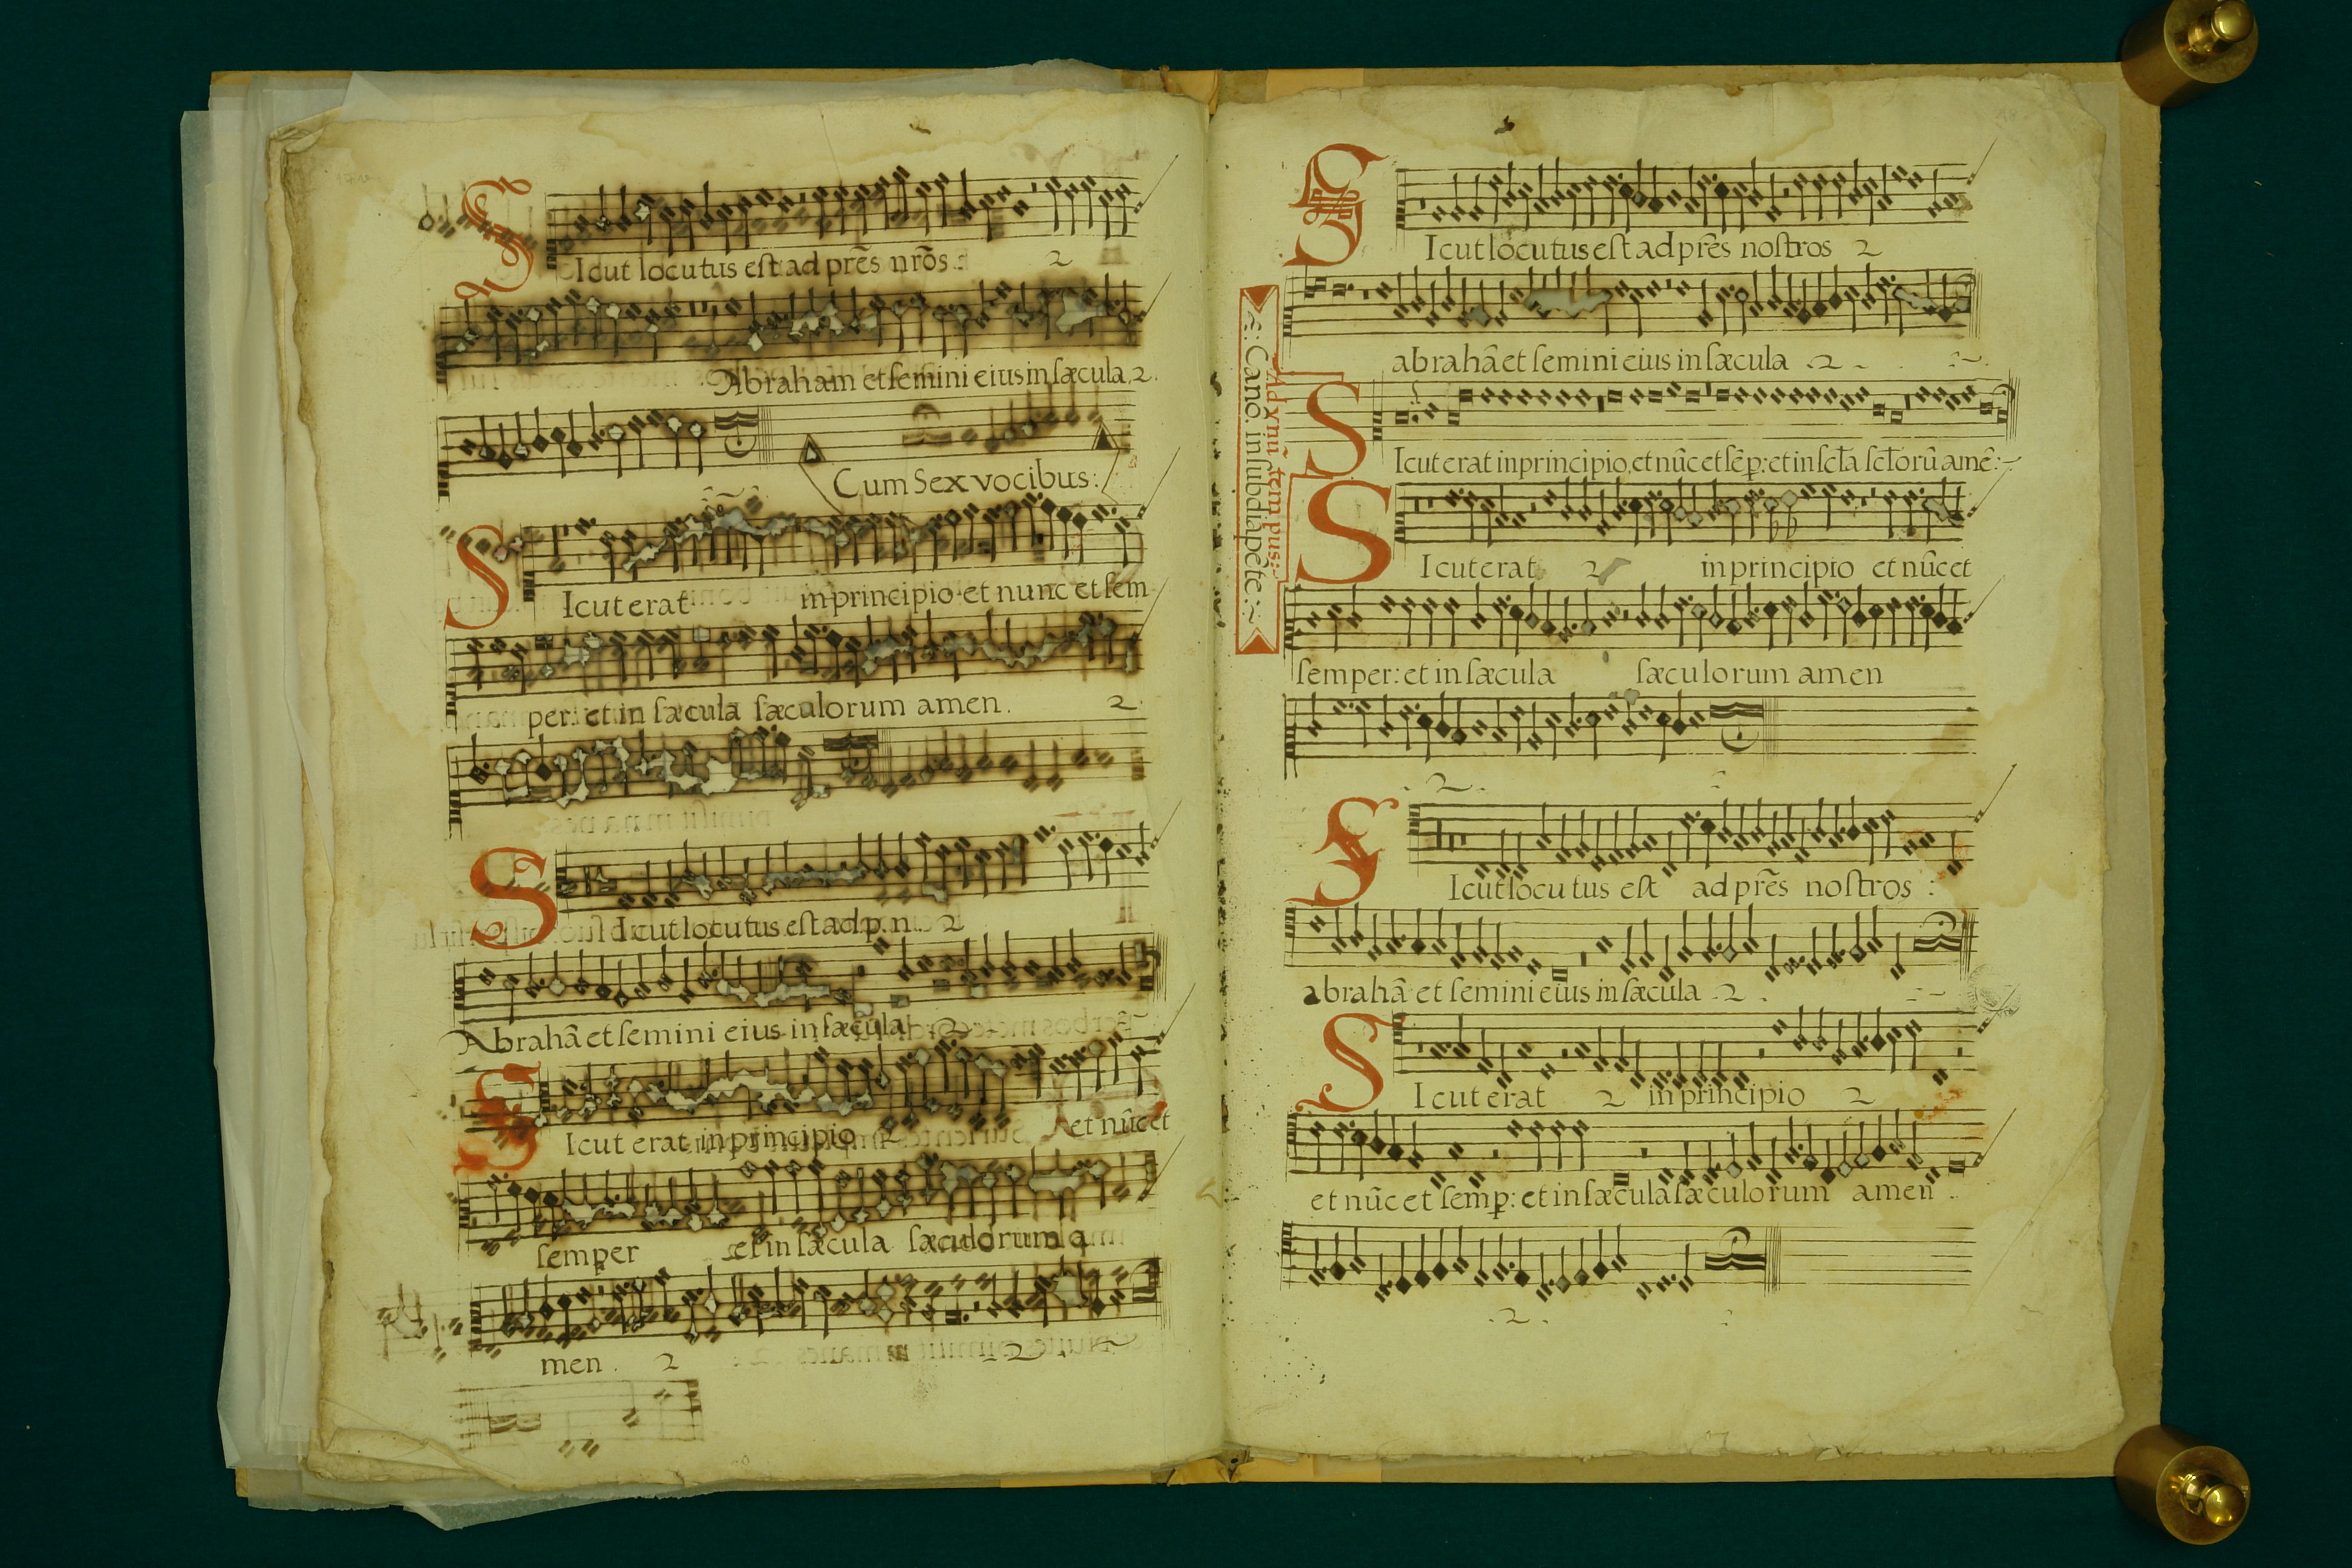 Sicut locutus est ad prēs nrōs : 2
Abraham et semini eius in sæcula. 2.
Cum Sex vocibus:
Sicut erat in principio et nunc et sem
per: et in sæcula sæculorum amen. 2.
Sicut locutus est ad p. n. 2
Abrahā et semini eius in sæcula 2
Sicut erat in principio et nūc et
semper et in sæcula sæculorum a
men. 2
Sicut locutus est ad prēs nostros 2
abrahā et semini eius in sæcula .2.
Ad vnū tempus:
Canō. in subdiapēte:
Sicut erat in principio, et nūc et sēp: et in sc̄la sc̄lorū amē:
Sicut erat 2 in principio et nūc et
semper: et in sæcula sæculorum amen
2
Sicut locutus est ad prēs nostros :
abrahā et semini eius in sæcula .2.
Sicut erat 2 in principio 2
et nūc et semp: et in sæcula sæculorum amen .
.2.